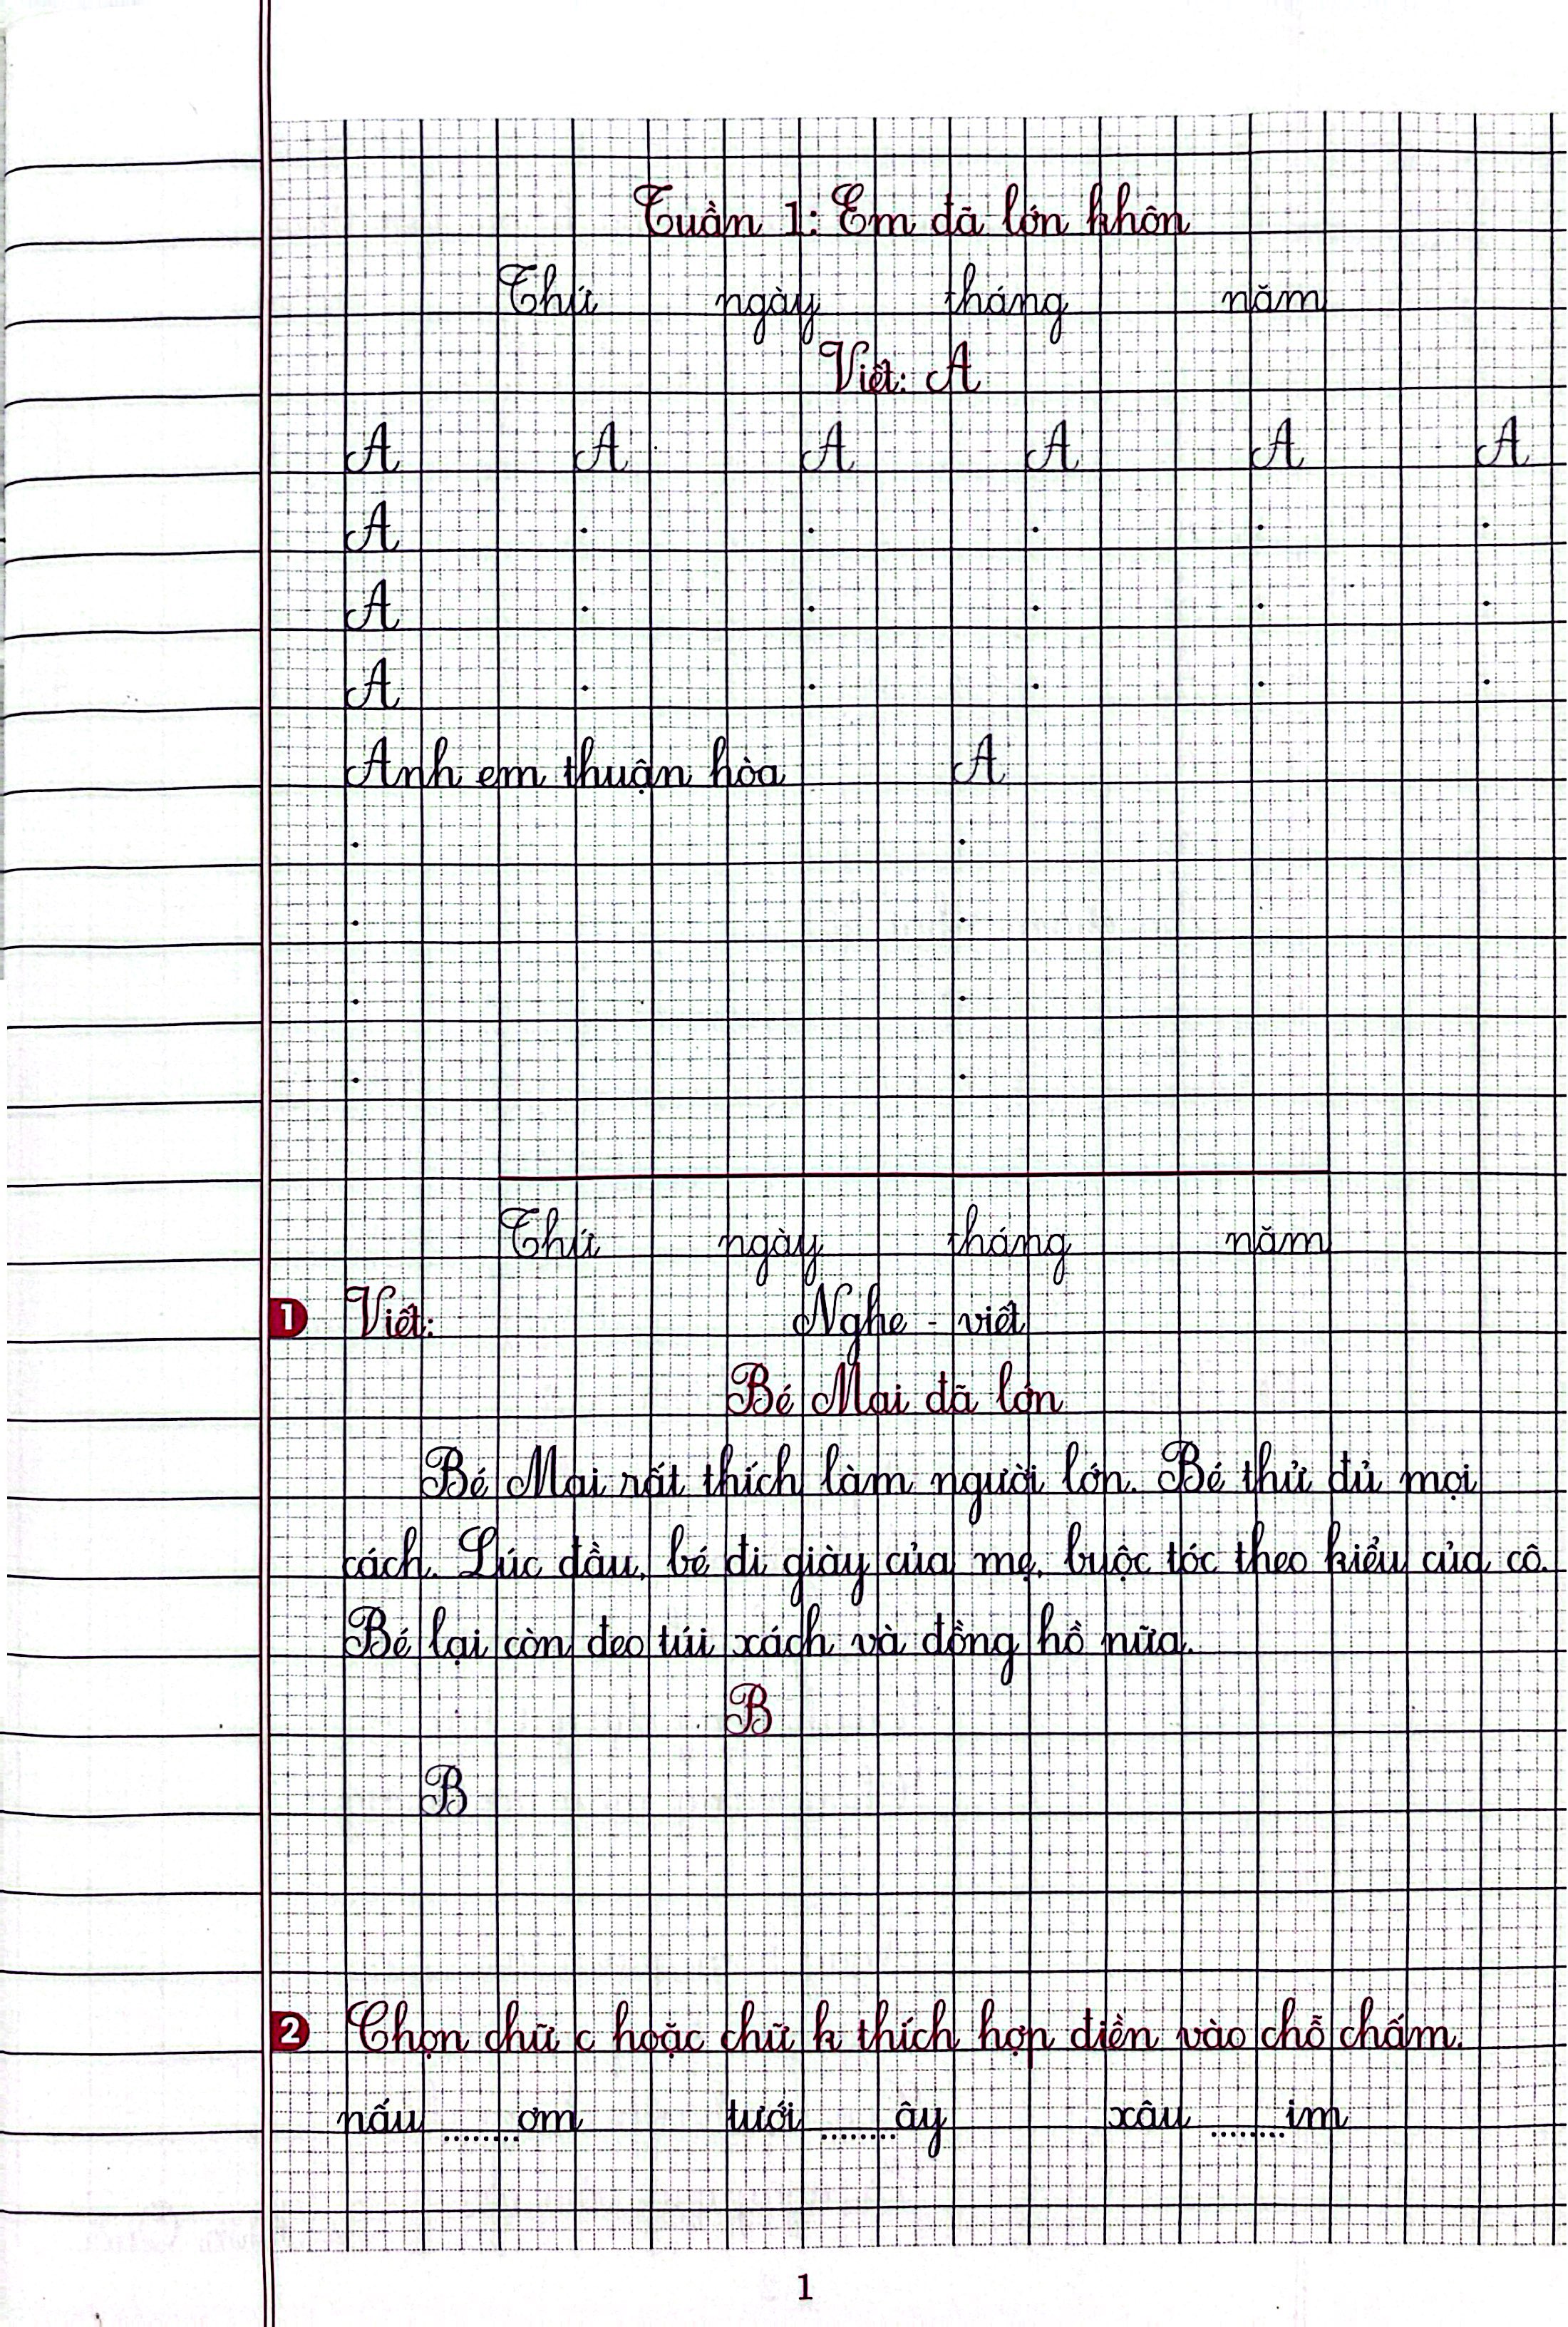 Tuần 1: Em đã lớn khôn
Thứ ngày tháng năm
Viết: A
A A A A A A
A . . . . .
A . . . . .
A . . . . .
Anh em thuận hòa A
. .
. .
. .
. .
Thứ ngày tháng năm
1 Viết: Nghe - viết
Bé Mai đã lớn
Bé Mai rất thích làm người lớn. Bé thử đủ mọi
cách. Lúc đầu, bé đi giày của mẹ, buộc tóc theo kiểu của cô.
Bé lại còn đeo túi xách và đồng hồ nữa.
B
B
2 Chọn chữ c hoặc chữ k thích hợp điền vào chỗ chấm.
nấu ........ơm tưới ........ây xâu ........im
1